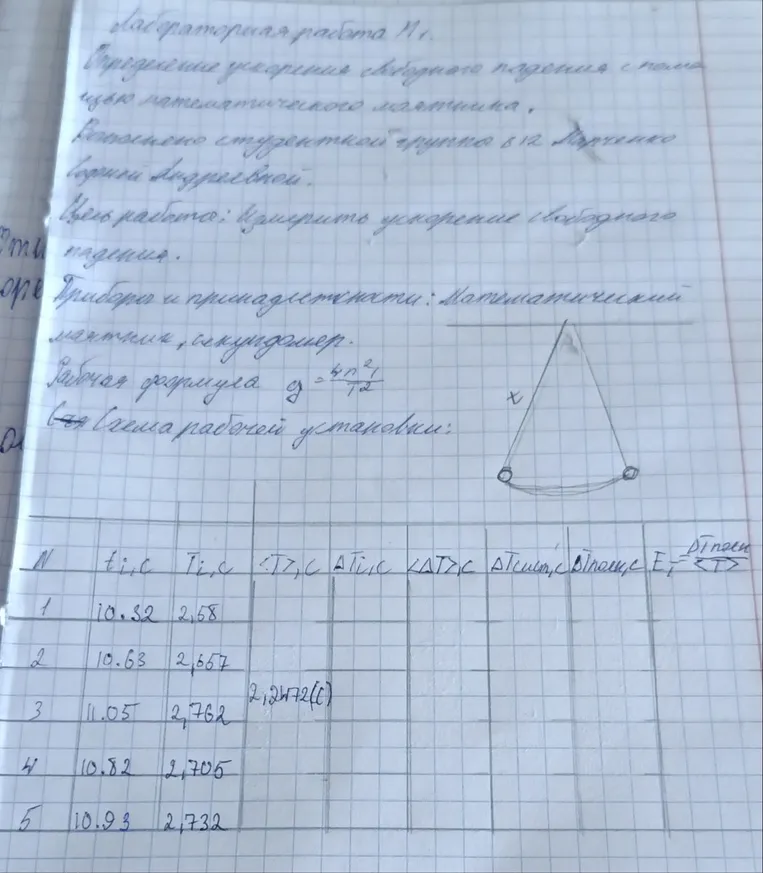 Лабораторная работа N1.
Определение ускорения свободного падения с помо
щью математического маятника.
Выполнено студенткой группы 612 Марченко
Софией Андреевной.
Цель работы: Измерить ускорение свободного
падения.
Приборы и принадлежности: Математический
маятник, секундомер.
Рабочая формула g = 4π²l/T²
Схема рабочей установки:
N ti,c Ti,c <T>,c ΔTi,c <ΔT>,c ΔTсист,c ΔTполн,c ET = ΔTполн/<T>
1 10.32 2,58
2 10.63 2,657
2,2472(с)
3 11.05 2,762
4 10.82 2,705
5 10.93 2,732